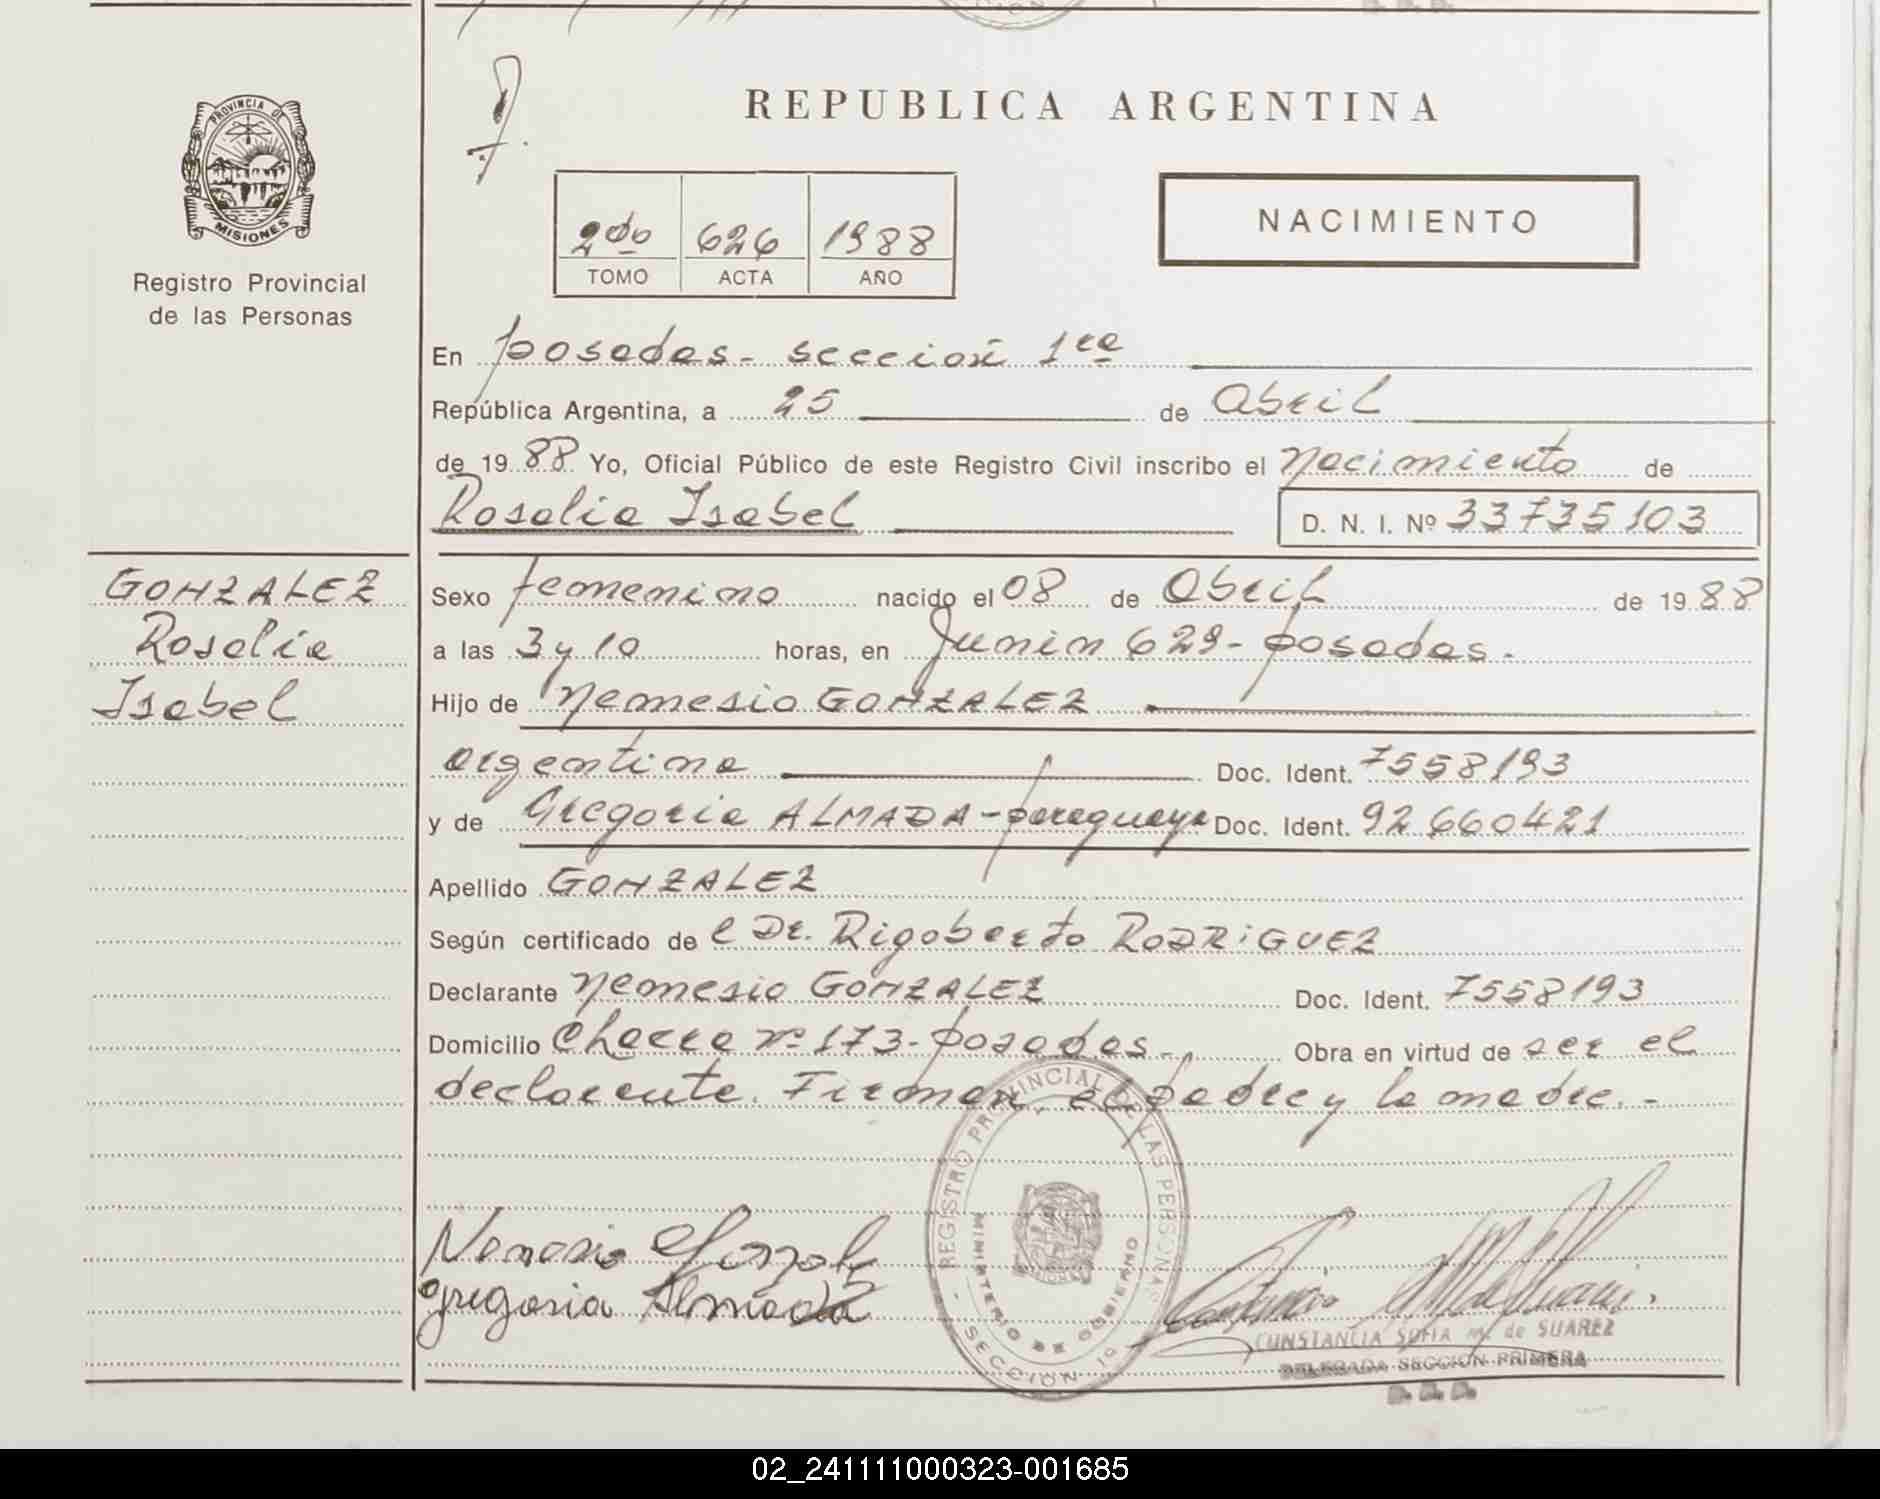 REPUBLICA ARGENTINA
PROVINCIA DE
MISIONES
Registro Provincial
de las Personas
2do 626 1988
TOMO ACTA AÑO
NACIMIENTO
En Posadas - sección 1ra
República Argentina, a 25 de Abril
de 1988 Yo, Oficial Público de este Registro Civil inscribo el Nacimiento de
Rosalia Isabel D. N. I. Nº 33735103
GONZALEZ
Rosalia
Isabel
Sexo femenino nacido el 08 de Abril de 1988
a las 3 y 10 horas, en Junin 629 - posadas.
Hijo de Nemesio GONZALEZ
argentino Doc. Ident. 7558193
y de Gregoria ALMADA - paraguaya Doc. Ident. 92660421
Apellido GONZALEZ
Según certificado de el Dr. Rigoberto RODRIGUEZ
Declarante Nemesio GONZALEZ Doc. Ident. 7558193
Domicilio Chacra nº 173 - posadas. Obra en virtud de ser el
declarante. Firman, el padre y la madre. -
REGISTRO PROVINCIAL DE LAS PERSONAS
MINISTERIO DE GOBIERNO
SECCION 1º
Nemesio Gonzalez
gregoria Almada
CONSTANCIA SOFIA M. de SUAREZ
DELEGADA SECCION PRIMERA
02_241111000323-001685